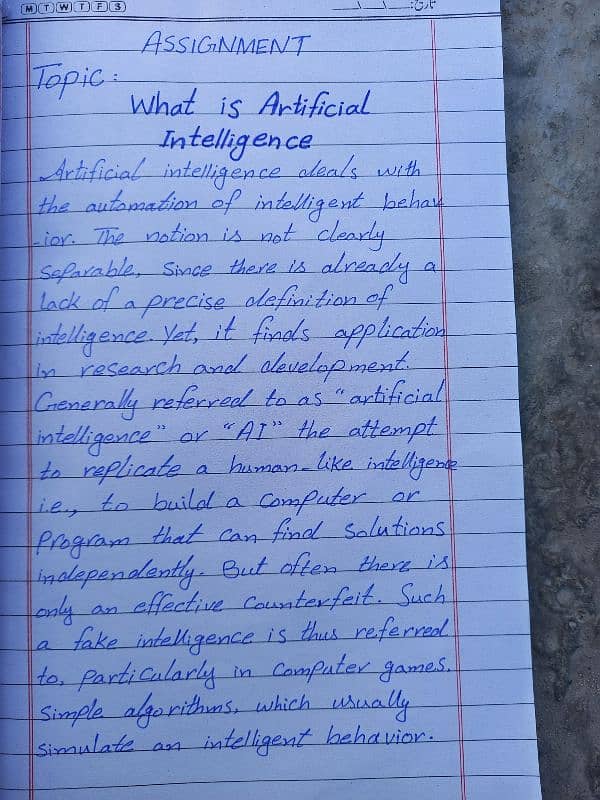 M T W T F S
تاریخ:
ASSIGNMENT
Topic:
What is Artificial
Intelligence
Artificial intelligence deals with
the automation of intelligent behav
-ior. The notion is not clearly
separable, since there is already a
lack of a precise definition of
intelligence. Yet, it finds application
in research and development.
Generally referred to as "artificial
intelligence" or "AI" the attempt
to replicate a human-like intelligence
i.e., to build a computer or
program that can find solutions
independently. But often there is
only an effective counterfeit. Such
a fake intelligence is thus referred
to, particularly in computer games.
Simple algorithms, which usually
simulate an intelligent behavior.